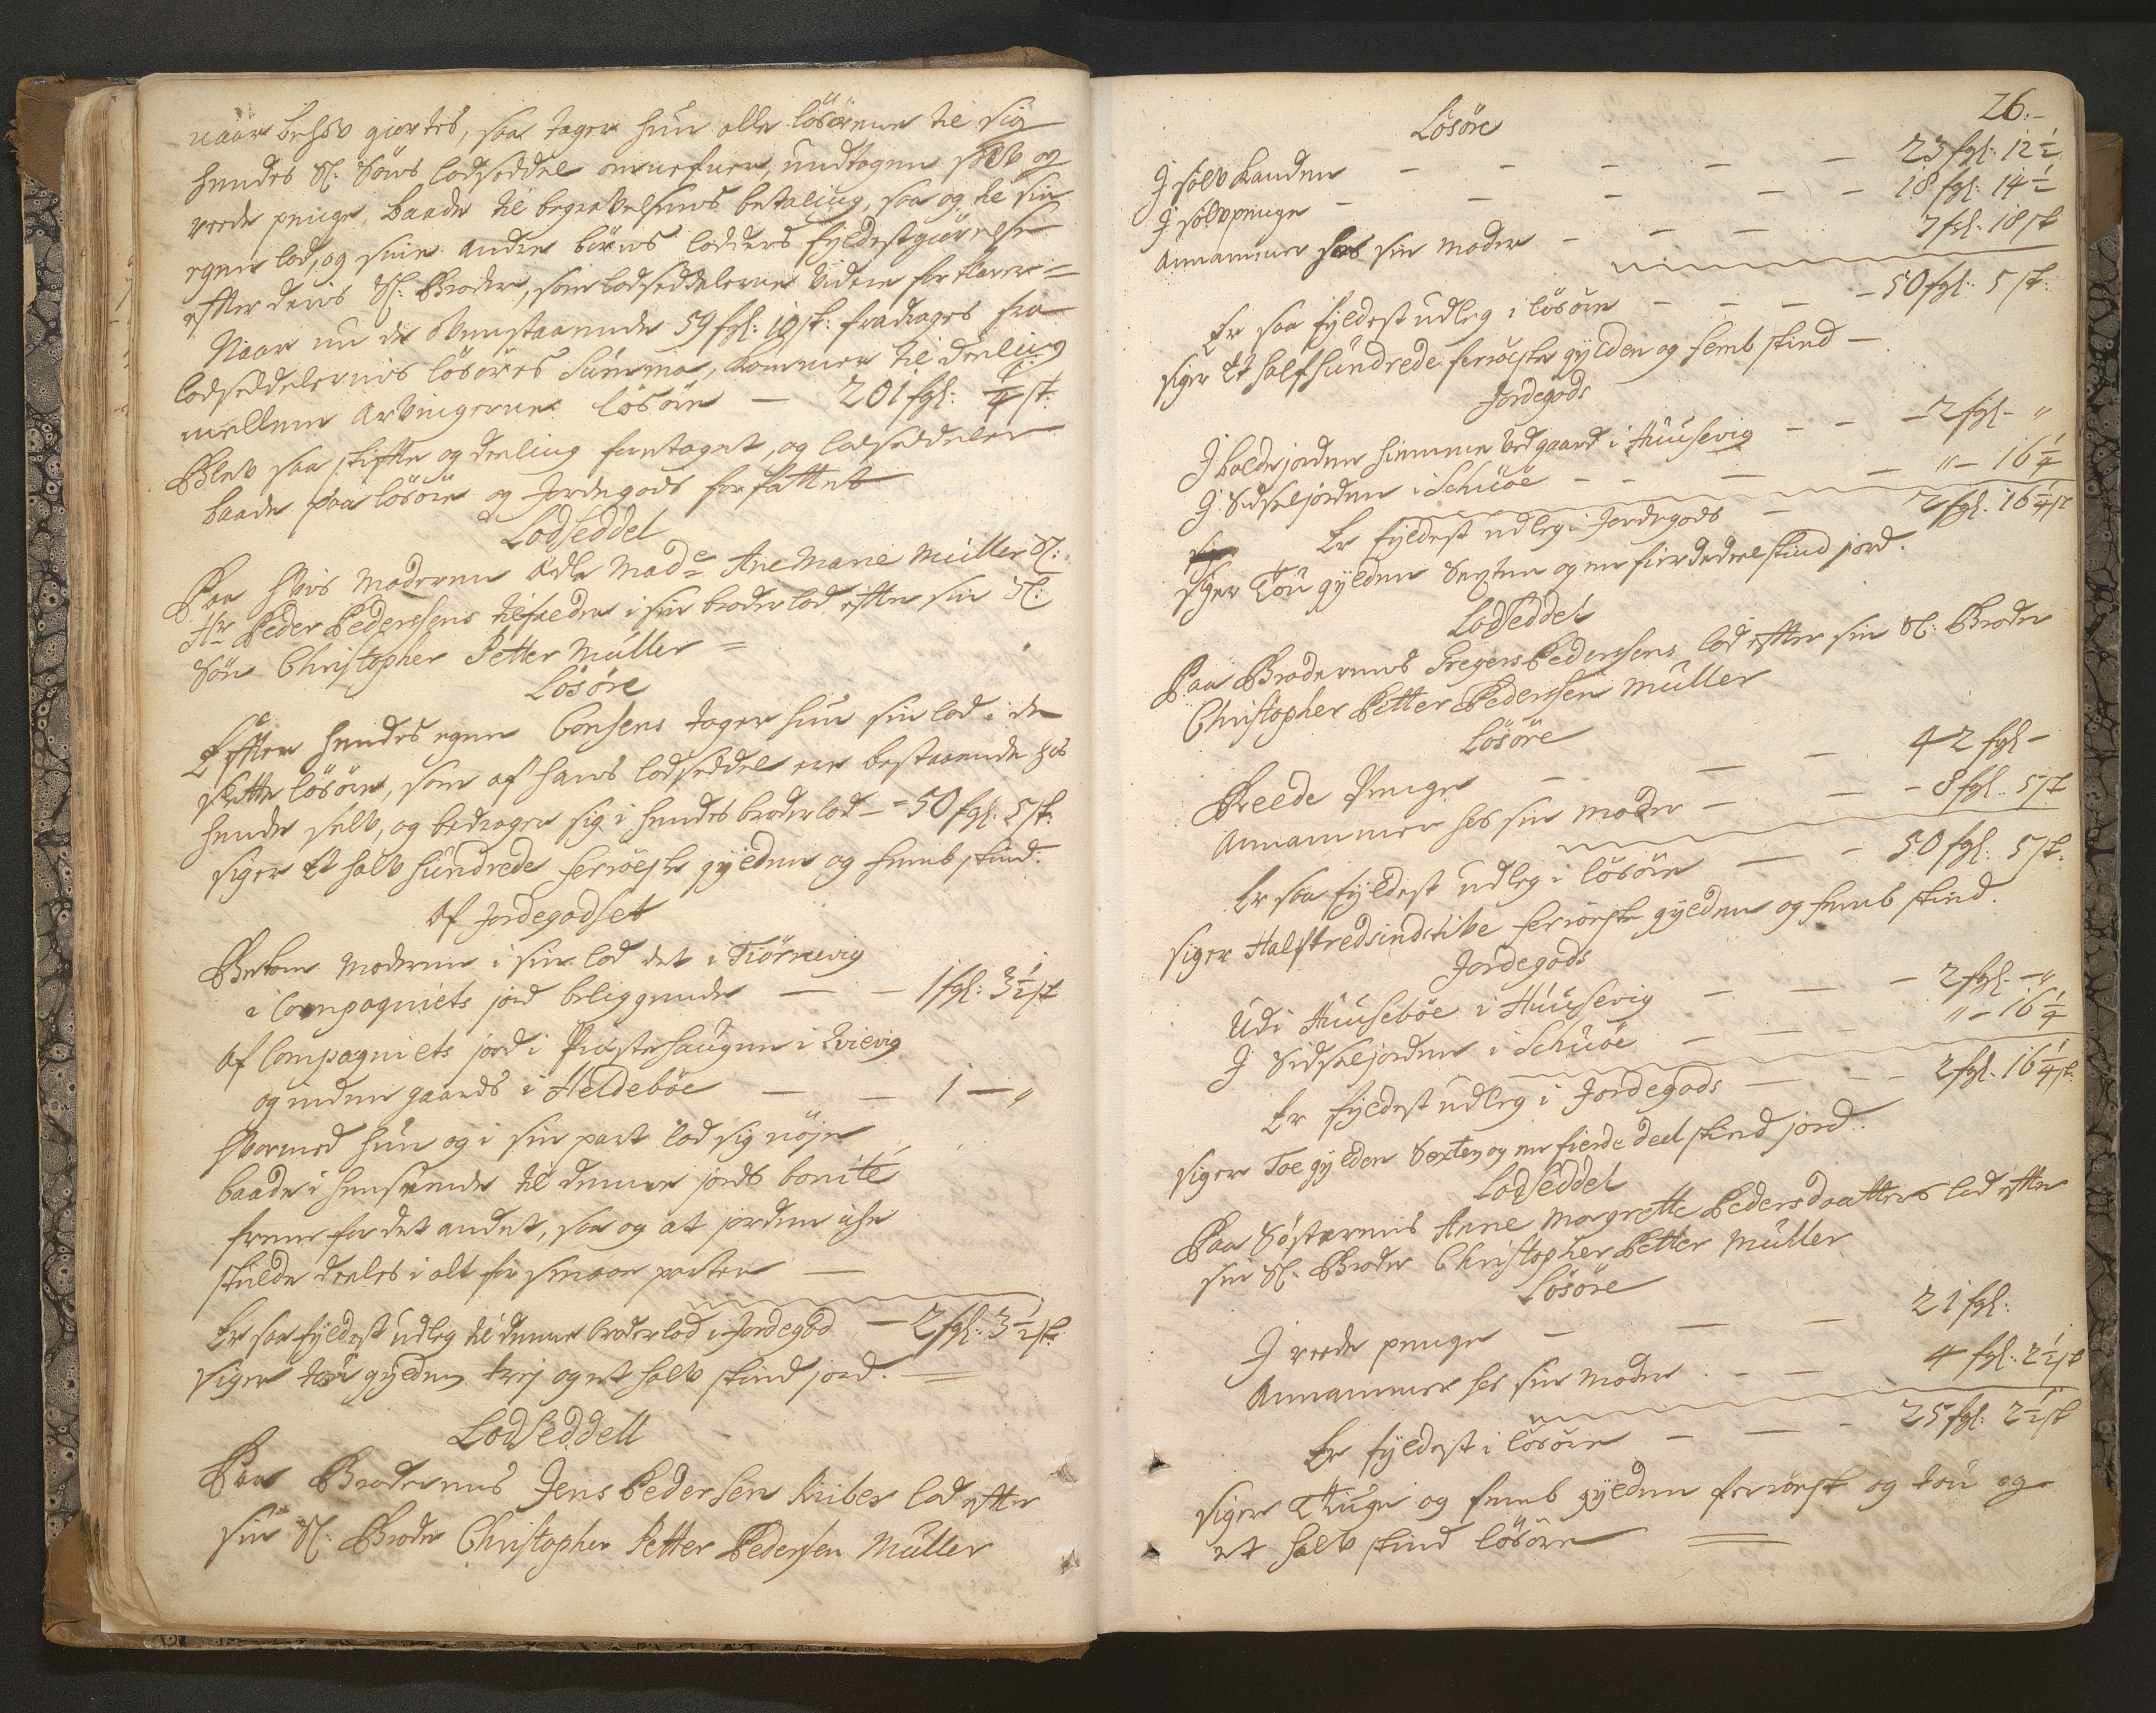 naar behov giøres, saa tager hun alle løsørerne til sig
hendes Sl: Søns lodseddel omnefner, undtagen sølv og
reede penge, baade til begravelsens betaling, saa og til sin
egen lod, og sine andre børns lodders fyldestgiørelse
efter deris Sl: Broder, som lodseddelerne videre forklarer =
Naar nu de ovenstaaende 59 fgl: 19 sk: fradrages fra
lodseddelernis løsøres Summa, kommer til deeling
mellem Arvingerne løsøre — 201 fgl: sk:
Blev saa skifte og deeling foretaget, og lodseddeler
baade paa løsøre og Jordegods forfattet
Lodseddel
Paa hvis Moderen Ædle Made Ane Marie Müller Sl:
Hr Peder Pederssens tilfalder i sin broderlod efter sin Sl:
Søn Christopher Petter Müller =
Løsøre
Efter hendes egen Consens tager hun sin lod i de
slette løsøre, som af hans lodseddel er bestaaende hos
hende selv, og bedrager sig i hendes broderlod = 50 fgl: 5 sk:
siger Et halv hundrede ferröeske gylden og femb skind.
Af Jordegodset
Bekom Moderen i sin lod det i Tiörnevig
i Compagniets jord beliggende — — 1 fgl: 3 1/2 sk
Af Compagniets jord i Præstehaugen i Qvivig
og inden gaards i Heldebøe — — 1 — "
hvormed hun og i sin part lod sig nöje
baade i henseende til denne jords bonité
frem for det andet, saa og at jorden iche
skulde deeles i alt for smaae parter —
Er saa fyldest udleg til denne broderlod i Jordegods — 2 fgl: 3 1/2 sk:
siger tou gylden trej og et halv skind jord. =
Lodseddell
Paa Broderens Jens Pedersen Riber lod efter
sin Sl: Broder Christopher Petter Pedersen Müller
26.-
Løsøre
I sølv Kanden — — — — 23 fgl: 12 1/2
I sølvpenge — — — — 18 fgl: 14 1/2
Annammer hos sin Moder — — — 7 fgl. 18 sk
Er saa fyldest udleg i løsøre — — — — 50 fgl: 5 sk:
siger Et half hundrede ferröeske gylden og femb skind —
Jordegods
I boldejorden hiemme ved gaard i Huusevig — — — 2 fgl - "
I Sidseljorden i Schuöe — — — — " - 16 1/4
Er fyldest udleg i Jordegods — 2 fgl. 16 1/4 sk
siger Tou gylden Sexten og en fierdedeel skind jord.
Lodseddel
Paa Broderens Gregers Pederssens lod efter sin Sl: Broder
Christopher Petter Pederssen Müller
Løsöre
Reede Penge — — — 42 fgl -
Annammer hos sin Moder — — — 8 fgl. 5 sk
Er saa fyldest udleg i løsøre — — 50 fgl: 5 sk:
siger Halftredsindstive ferröeske gylden og femb skind.
Jordegods
Udi Huusebøe i Huusevig — — — 2 fgl. - "
I Sidseljorden i Schuöe — — — " - 16 1/4
Er fyldest udleg i Jordegods — — — 2 fgl. 16 1/4 sk:
siger Toe gylden Sexten og en fierde deel skind jord.
Lodseddel
Paa Søsterens Anne Margrette Pedersdaatters lod efter
sin Sl. Broder Christopher Petter Müller
Løsøre
I reede penge — — — 21 fgl:
Annammer hos sin Moder — — 4 fgl. 2 1/2 sk
Er fyldest i løsøre — — — 25 fgl: 2 1/2 sk
siger Tiuge og femb gylden ferröesk og tou og
et halv skind løsøre =